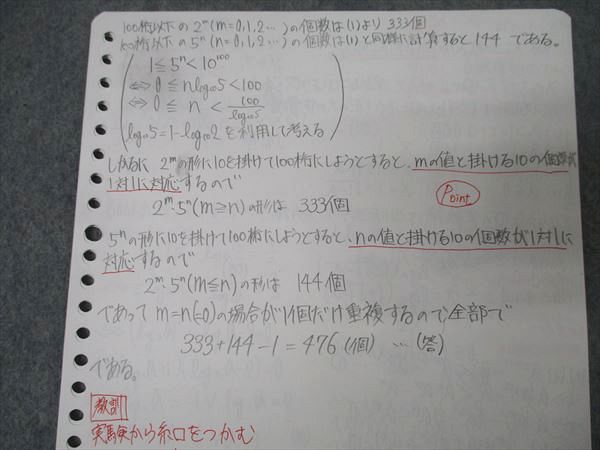 100桁以下の 2^m (m=0,1,2…)の個数は(1)より 333個
100桁以下の 5^n (n=0,1,2…)の個数は(1)と同様に計算すると144 である。
1≦5^n<10^100
⇔ 0≦nlog₁₀5<100
⇔ 0≦ n < 100/log₁₀5
log₁₀5=1-log₁₀2を利用して考える
しかるに 2^mの形に10を掛けて100桁にしようとすると、mの値と掛ける10の個数が
1対1に対応するので
Point
2^m・5^n(m≧n)の形は 333個
5^nの形に10を掛けて100桁にしようとすると、nの値と掛ける10の個数が1対1に
対応するので
2^m・5^n(m≦n)の形は 144個
であって m=n(=0)の場合が1個だけ重複するので全部で
333+144-1=476(個) …(答)
である。
教訓
実験から糸口をつかむ